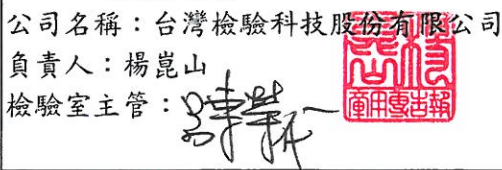 公司名稱：台灣檢驗科技股份有限公司
負責人：楊崑山
檢驗室主管：